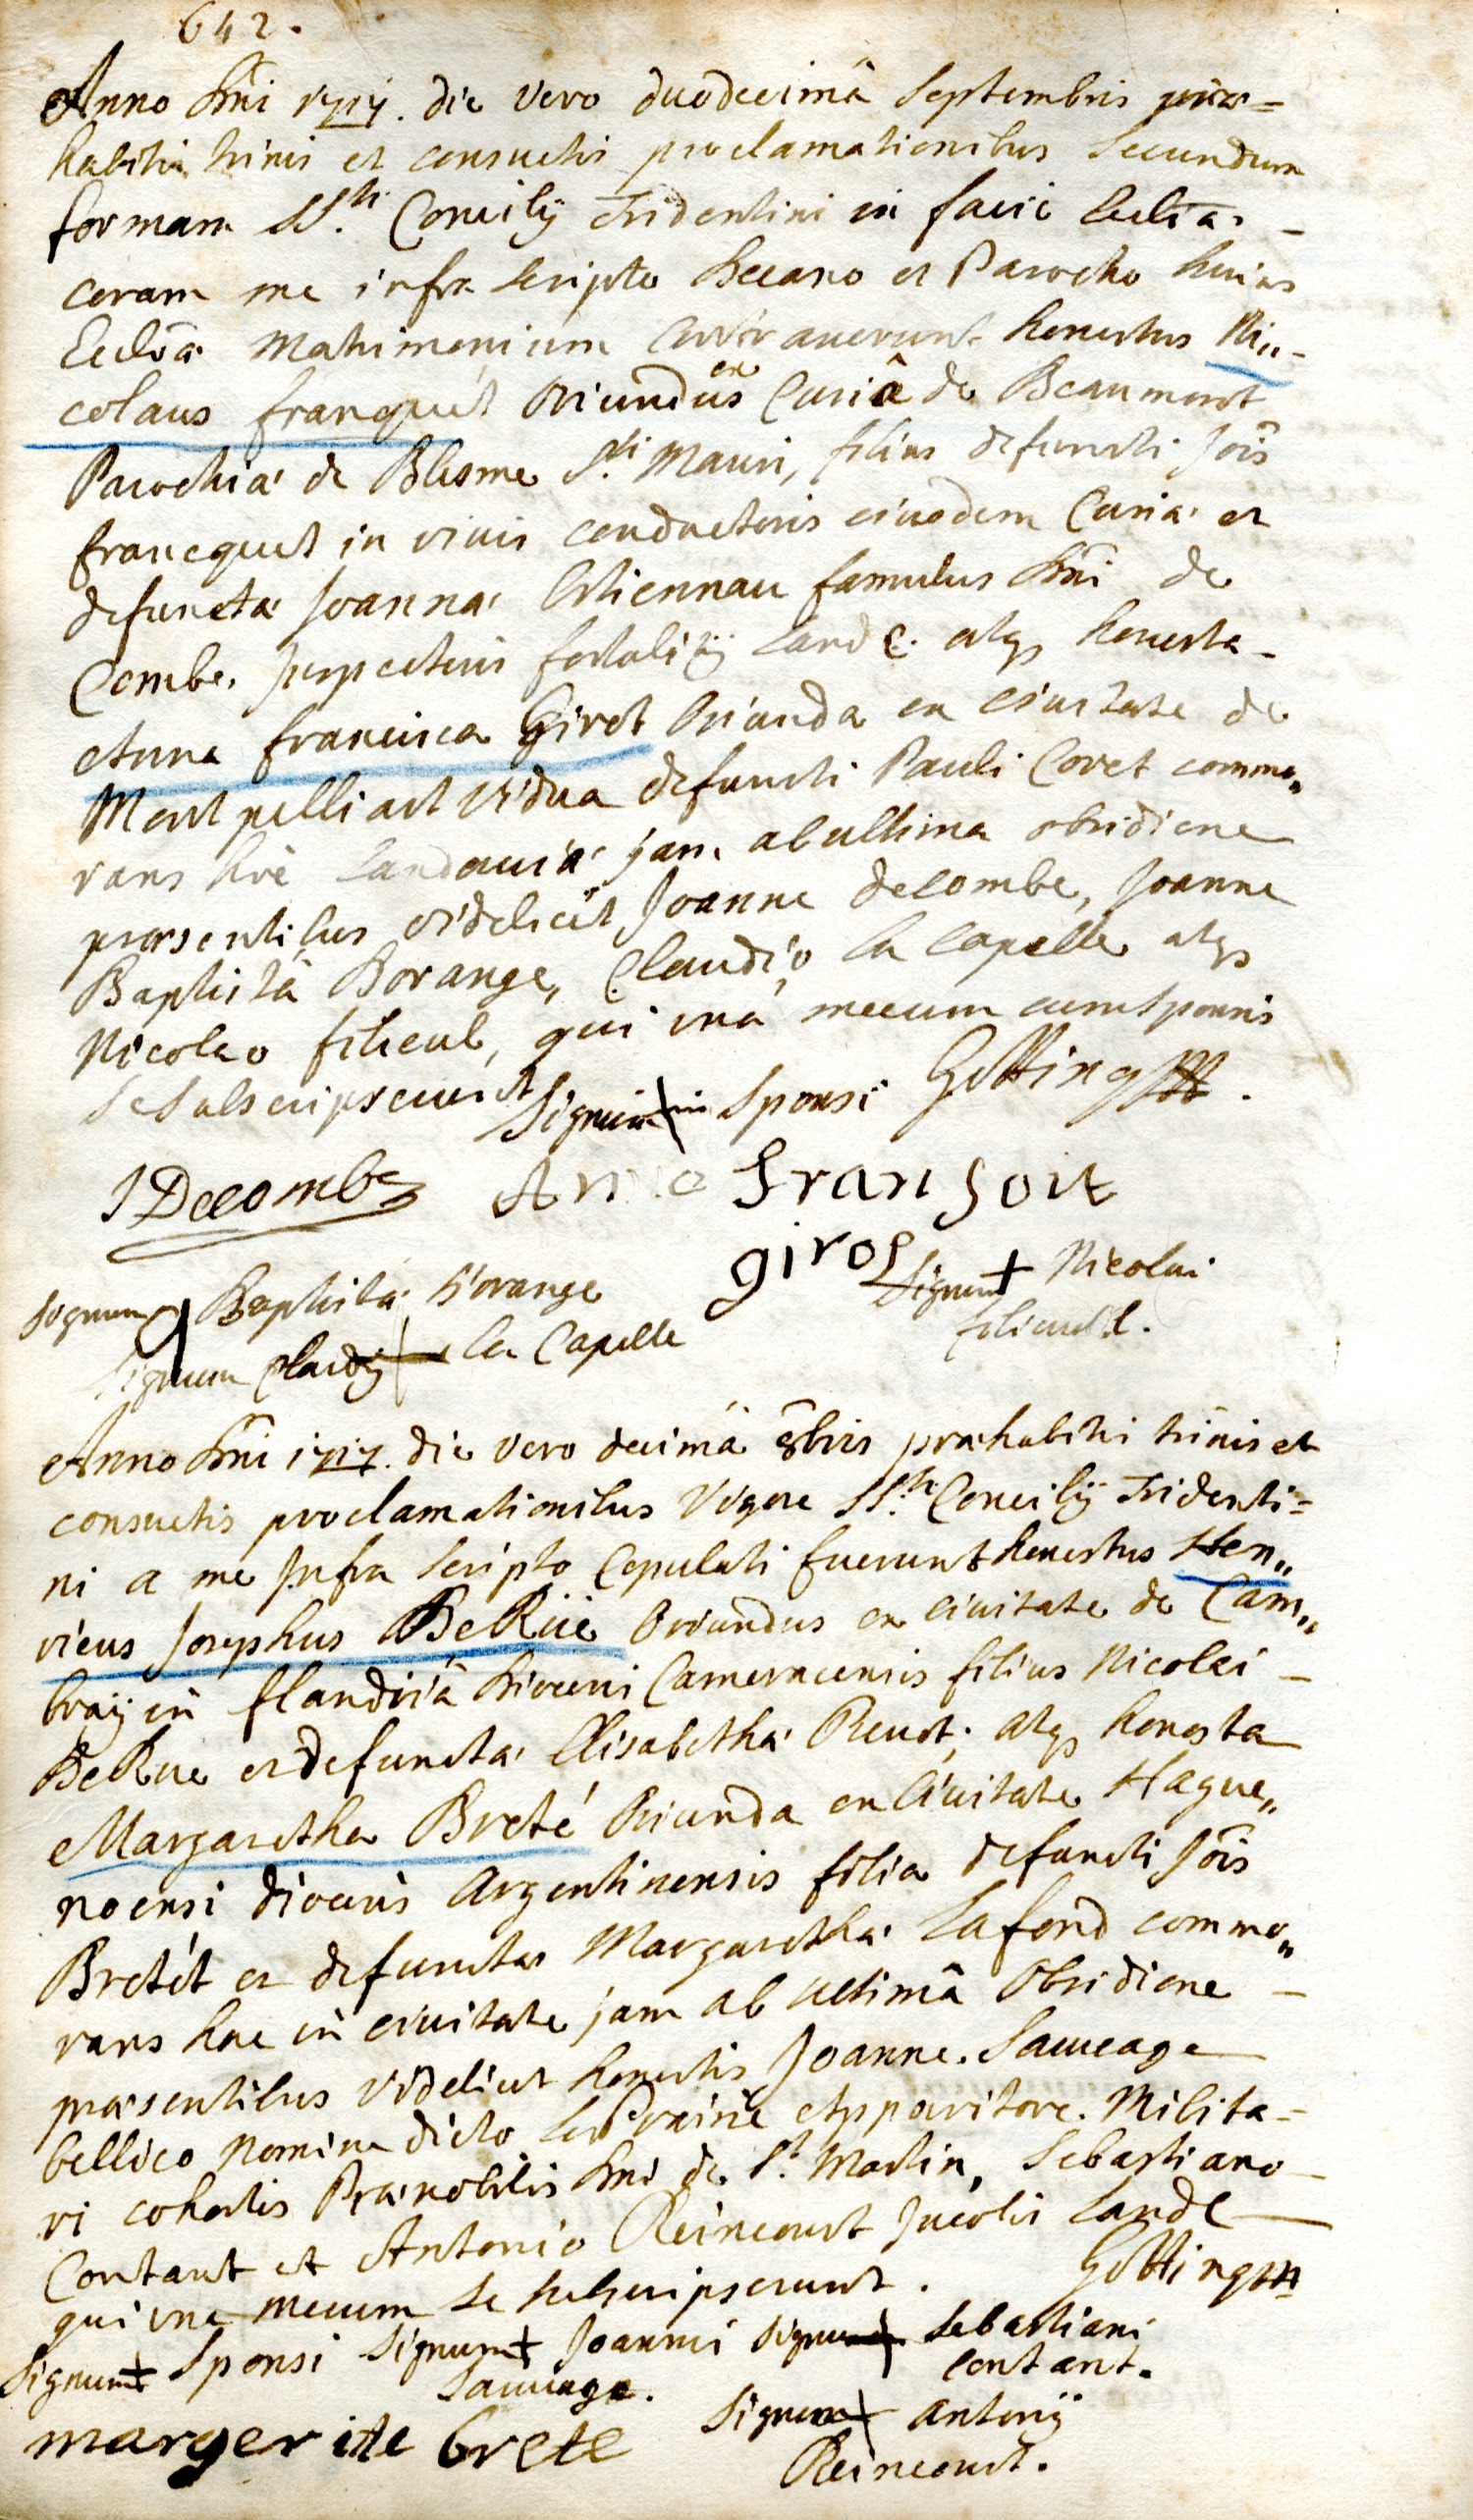 642.
Anno Dni 1717. die vero duodecimâ Septembris præ=
habitis trinis et consuetis proclamationibus secundum
formam SS.ti Concilÿ Tridentini in facie Eccliæ
coram me infra scripto Decano et Parocho huius
Eccliæ Matrimonium contraxerunt honestus Ni,,
colaus franquet Oriundus ex Curiâ de Beaumont
Parochiæ de Blesme S.ti Mauri, filius defuncti Jois
francquet in vivis conductoris eiusdem Curiæ et
defunctæ Joannæ Estiennau famulus Dni de
Combe, Inspectoris fortalitÿ Land. atq honesta
Anna francisca Girot Oriunda ex civitate de
Montpelliart vidua defuncti Pauli Coret commo,,
rans hic Landaviæ jam ab ultima obsidione
præsentibus videlicet Joanne decombe, Joanne
Baptistâ Borange, Claudio La Capelle atq
Nicolao filieul, qui unâ mecum cum sponsis
se subscripserunt Signum + Sponsi Götting
J Decombe Anne Fransoit
girot
Signum Baptistæ Borange Signum + Nicolai
filieul.
Signum Claudÿ + La Capelle
Anno Dni 1717. die vero decimâ 8bris præhabitis trinis et
consuetis proclamationibus Vigore SS.ti Concilÿ Tridenti=
ni a me Infra scripto Copulati fuerunt honestus Hen,,
ricus Josephus DeRüe Oriundus ex civitate de Cam,,
braÿ in flandriâ Diocesis Cameracensis filius Nicolai
DeRue et defunctæ Elisabethæ Renot; atq honesta
Margaretha Breté Oriunda ex Civitate Hague,,
noensi diocesis Argentinensis filia defuncti Jois
Bretét et defunctæ Margarethæ Lafond commo,,
rans hac in civitate jam ab ultimâ Obsidione
præsentibus videlicet honestis Joanne Sauveage
bellico nomine dicto Apparitore Milita=
ri cohortis Prænobilis Dni de St Martin, Sebastiano
Contant et Antonio Reincourt Incolis Land
qui una mecum se subscripserunt. Götting
Signum + Sponsi Signum + Joannis Signum + Sebastiani
Sauvage. Contant.
Signum + Antonÿ
margerite brete Reincourt.